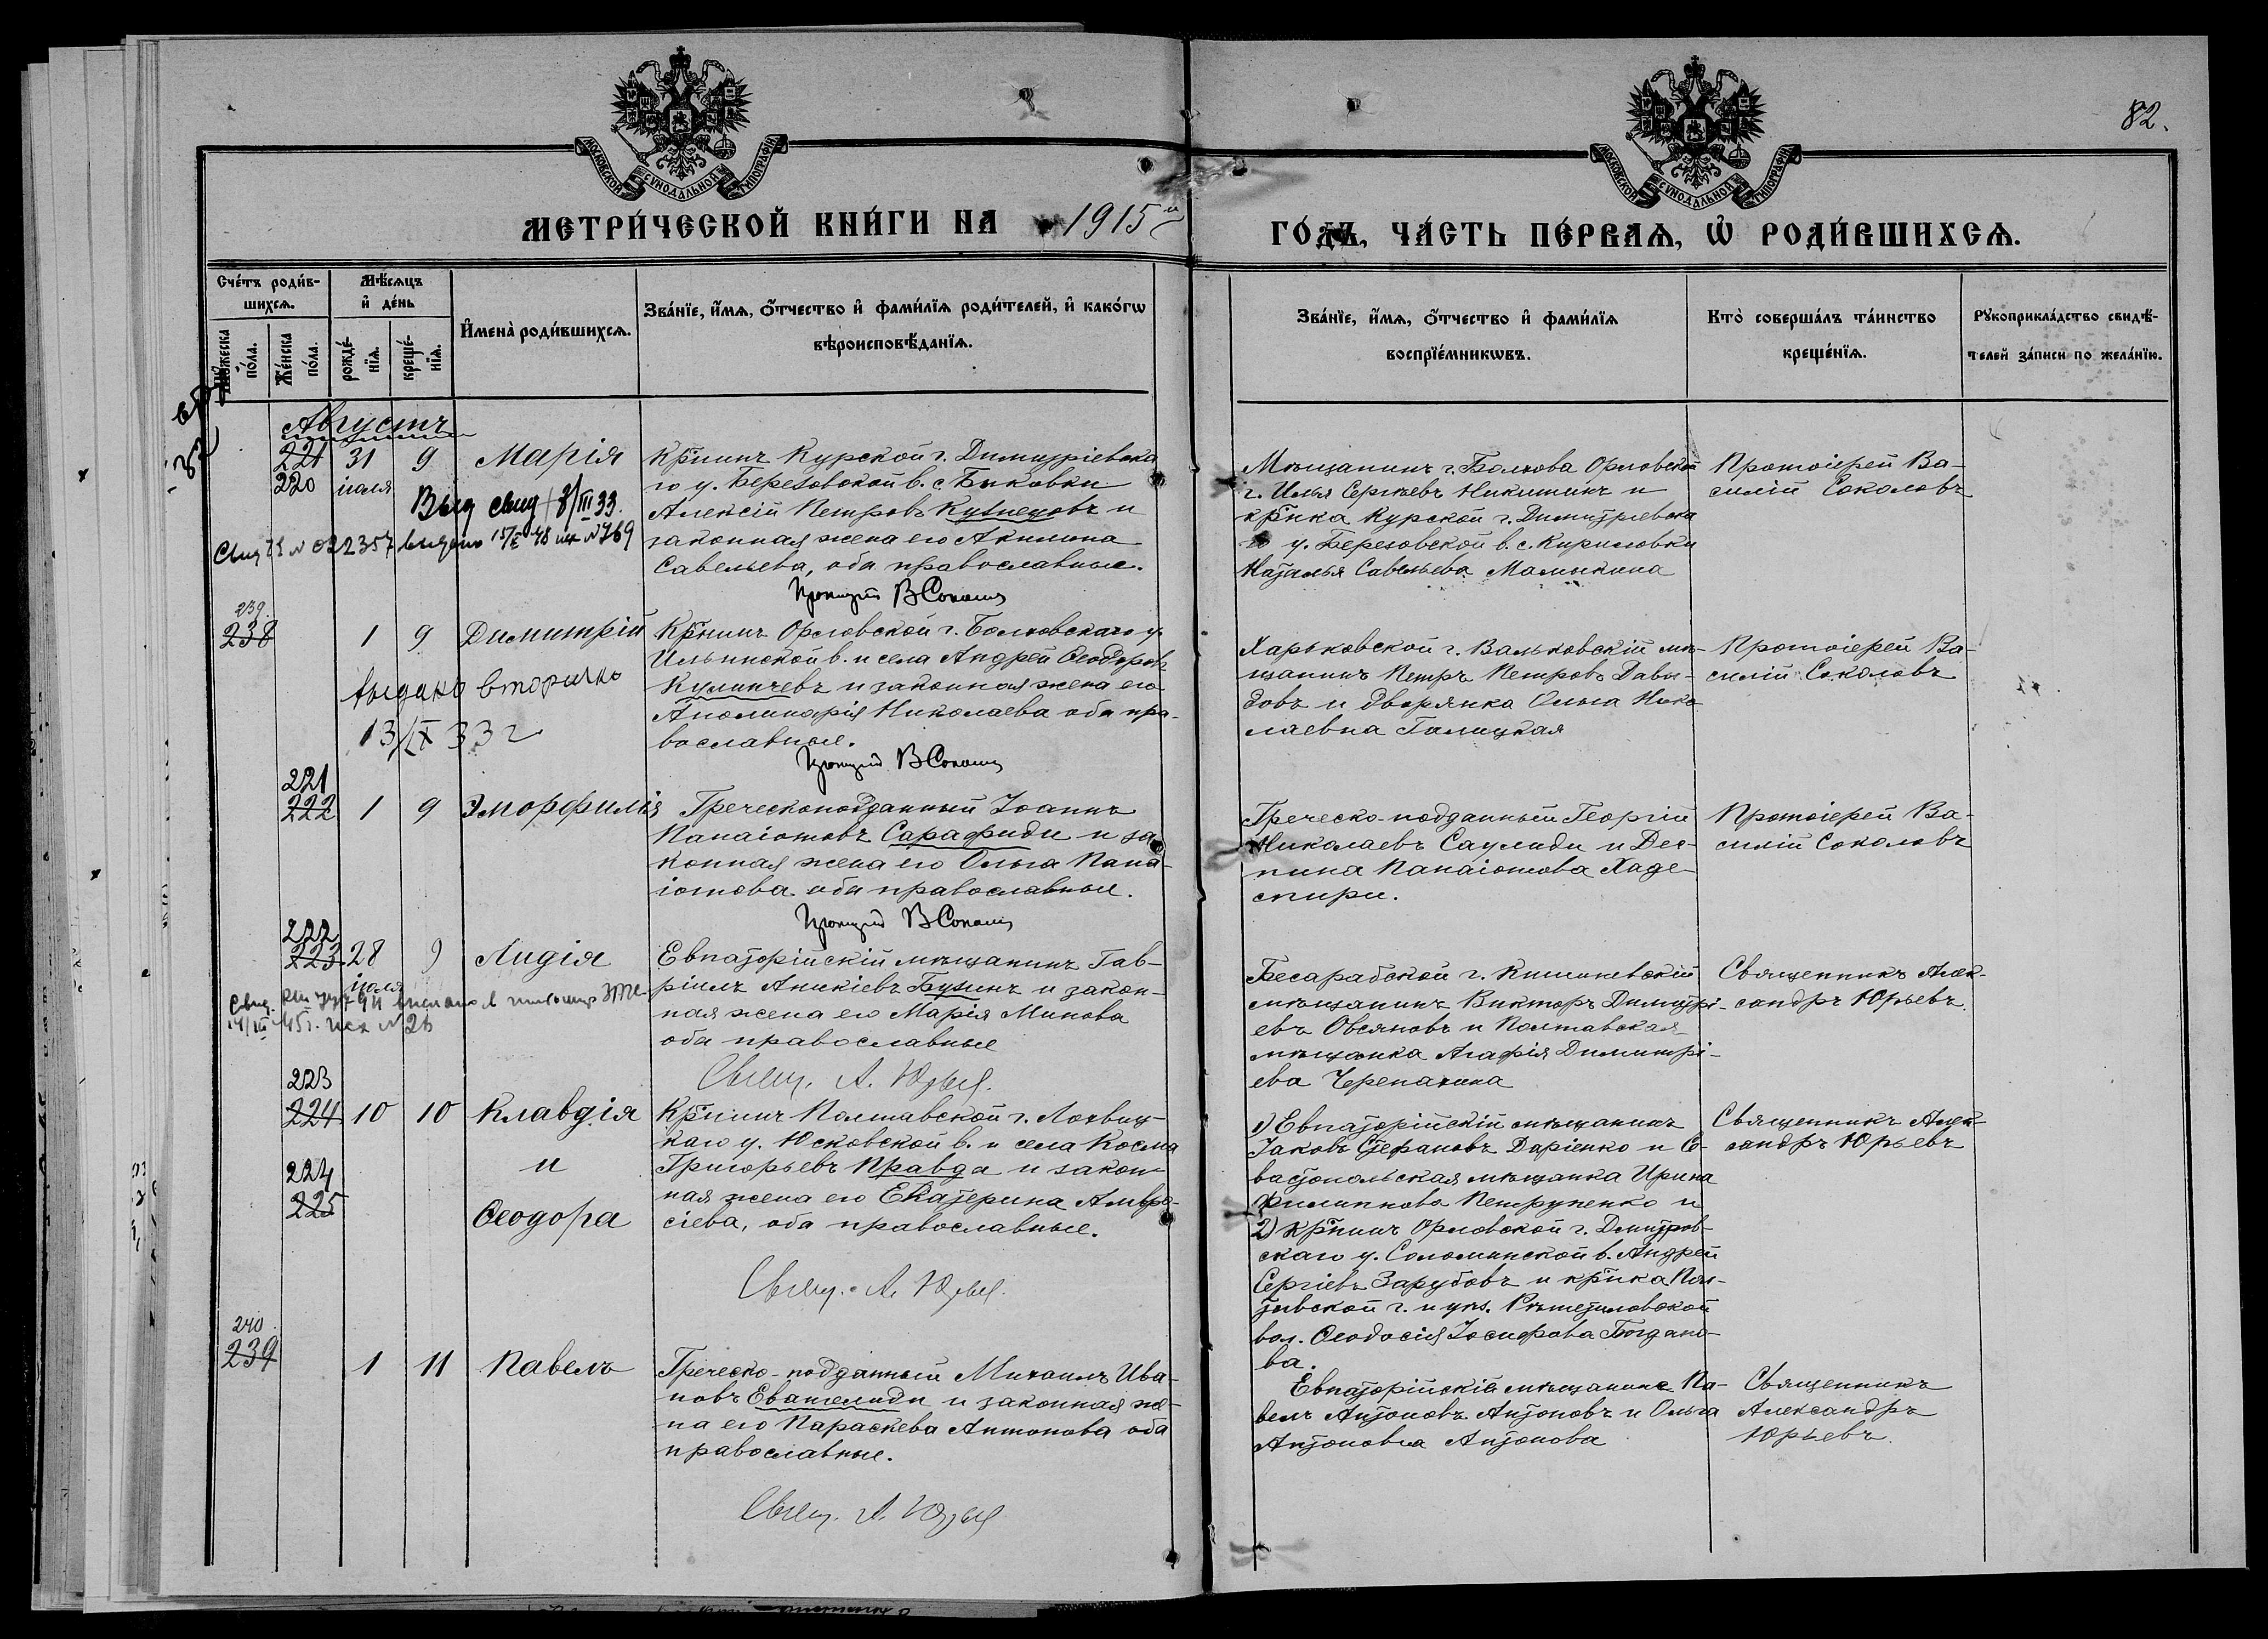 82.
МОСКОВСКОЙ СѴНОДАЛЬНОЙ ТИПОГРАФІИ
МОСКОВСКОЙ СѴНОДАЛЬНОЙ ТИПОГРАФІИ
МЕТРИ́ЧЕСКОЙ КНИ́ГИ НА 1915й
ГО́ДЪ, ЧА́СТЬ ПЕ́РВАѦ, Ѡ РОДИ́ВШИХСѦ.
Сче́тъ роди́в-
шихсѧ.
Мѣ́сѧцъ
и҆ де́нь
Мꙋжеска
по́ла.
Же́нска
по́ла.
рожде́-
нїѧ.
креще́-
нїѧ.
И҆мена̀ роди́вшихсѧ.
Зва́нїе, и҆́мѧ, ѻ҆́тчество и҆ фами́лїѧ роди́телей, и҆ како́гѡ
вѣроисповѣ́данїѧ.
Зва́нїе, и҆́мѧ, ѻ҆́тчество и҆ фами́лїѧ
воспрїе́мникѡвъ.
Кто̀ соверша́лъ та́инство
креще́нїѧ.
Рꙋкоприкла́дство свидѣ́-
телей за́писи по жела́нїю.
Августъ
221 31 9 Марія
220 іюля
Крнинъ Курской г. Димитріевска
го у. Березовской в. с. Быковки
Алексій Петровъ Кузнецовъ и
законная жена его Акилина
Савельева, оба православные.
Выд свид 8/III 33.
Свид № 022357 выдано 15/X 48 исх № 769
Протоіерей В Соколовъ
Мѣщанинъ г. Болхова Орловской
г. Илья Сергѣевъ Никитинъ и
крнка Курской г. Димитріевска
го у. Березовской в. с. Кириловки
Наталья Савельева Малыкина
Протоіерей Ва-
силій Соколовъ
239.
238 1 9 Димитрій
Крнинъ Орловской г. Болховскаго у.
Ильинской в. и села Андрей Ѳеодоровъ
Куличевъ и законная жена его
Аполинарія Николаева оба пра-
вославные.
выдано вторично
13/IX 33 г
Протоіерей В Соколовъ
Харьковской г. Вальковскій мѣ-
щанинъ Петръ Петровъ Давы-
довъ и дворянка Ольга Нико
лаевна Галицкая
Протоіерей Ва-
силій Соколовъ
221
222 1 9 Эморфилія
Греческоподданный Іоаннъ
Панаіотовъ Сарафиди и за
конная жена его Ольга Пана-
іотова оба православные.
Протоіерей В Соколовъ
Греческо-подданный Георгій
Николаевъ Саулиди и Дес-
пина Панаіотова Хаде-
спири.
Протоіерей Ва-
силій Соколовъ
222
223 28 9 Лидія
іюля
Евпаторійскій мѣщанинъ Гав-
ріилъ Аникіевъ Бузинъ и закон-
ная жена его Марія Минова
оба православные
14/III 45 г. исх № 26
Свящ. А. Юрьевъ.
Бесарабской г. Кишиневскій
мѣщанинъ Викторъ Димитрі-
евъ Овсяновъ и Полтавская
мѣщанка Агафія Димитрі-
ева Черепахина
Священникъ Алек-
сандръ Юрьевъ.
223
224 10 10 Клавдія
и
224
225 Ѳеодора
Крнинъ Полтавской г. Лохвиц-
каго у. Юсковской в. и села Косма
Григорьевъ Правда и закон-
ная жена его Екатерина Амвро-
сіева, оба православные.
Свящ. А. Юрьевъ.
1) Евпаторійскій мѣщанинъ
Іаковъ Стефановъ Даріенко и Се-
вастопольская мѣщанка Ирина
Филиппова Петруненко и
2) крнинъ Орловской г. Дмитров-
скаго у. Соломинской в. Андрей
Сергіевъ Зарубовъ и крнка Пол-
тавской г. и уѣз. Рѣшетиловской
вол. Ѳеодосія Іосифова Богдано-
ва.
Священникъ Алек-
сандръ Юрьевъ
240.
239 1 11 Павелъ
Греческо-подданный Михаилъ Ива-
новъ Евангелиди и законная же-
на его Параскева Антонова оба
православные.
Свящ. А. Юрьевъ
Евпаторійскіе мѣщанинъ Па-
велъ Антоновъ Антоновъ и Ольга
Антоновна Антонова
Священникъ
Александръ
Юрьевъ.